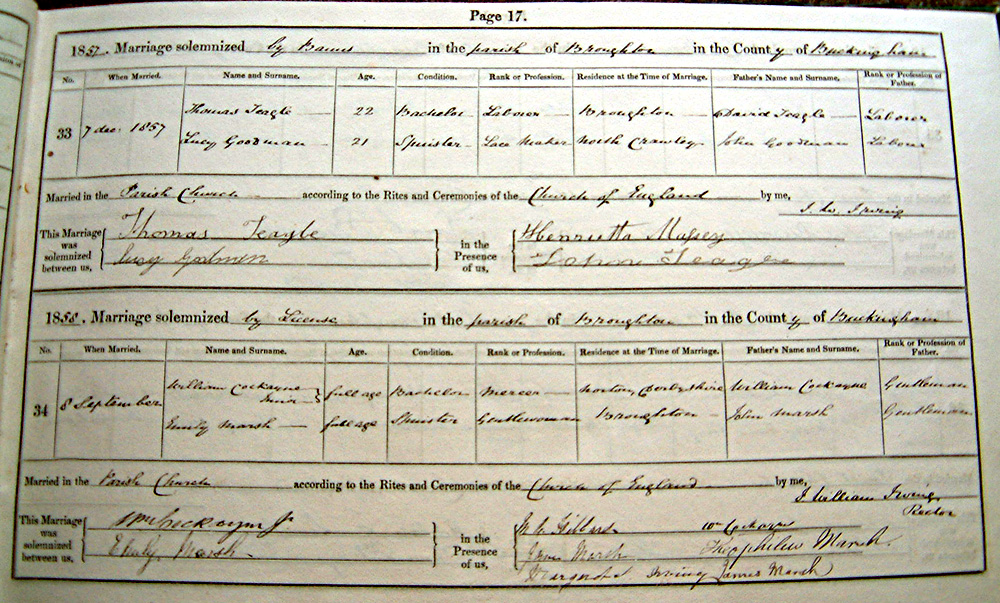 Page 17.
1857. Marriage solemnized by Banns in the parish of Broughton in the County of Buckingham
No. When Married. Name and Surname. Age. Condition. Rank or Profession. Residence at the Time of Marriage. Father's Name and Surname. Rank or Profession of Father.
Thomas Teagle 22 Bachelor Labourer Broughton David Teagle Labourer
33 7 dec. 1857
Lucy Goodman 21 Spinster Lace Maker North Crawley John Goodman Labour
Married in the Parish Church according to the Rites and Ceremonies of the Church of England by me,
J. W. Irving
This Marriage was solemnized between us, Thomas Teagle in the Presence of us, Henrietta Massey
Lucy Godmen Teagle
1858. Marriage solemnized by License in the parish of Broughton in the County of Buckingham
No. When Married. Name and Surname. Age. Condition. Rank or Profession. Residence at the Time of Marriage. Father's Name and Surname. Rank or Profession of Father.
William Cockayne full age Bachelor Mercer Norton, Derbyshire William Cockayne Gentleman
34 8 September
Emily Marsh full age Spinster Gentlewoman Broughton John Marsh Gentleman
Married in the Parish Church according to the Rites and Ceremonies of the Church of England by me,
J. William Irving
Rector
This Marriage was solemnized between us, Wm Cockayne Jr in the Presence of us, Wm Cockayne
Marsh Jane Marsh Theophilus Marsh
Margaret Irving James Marsh